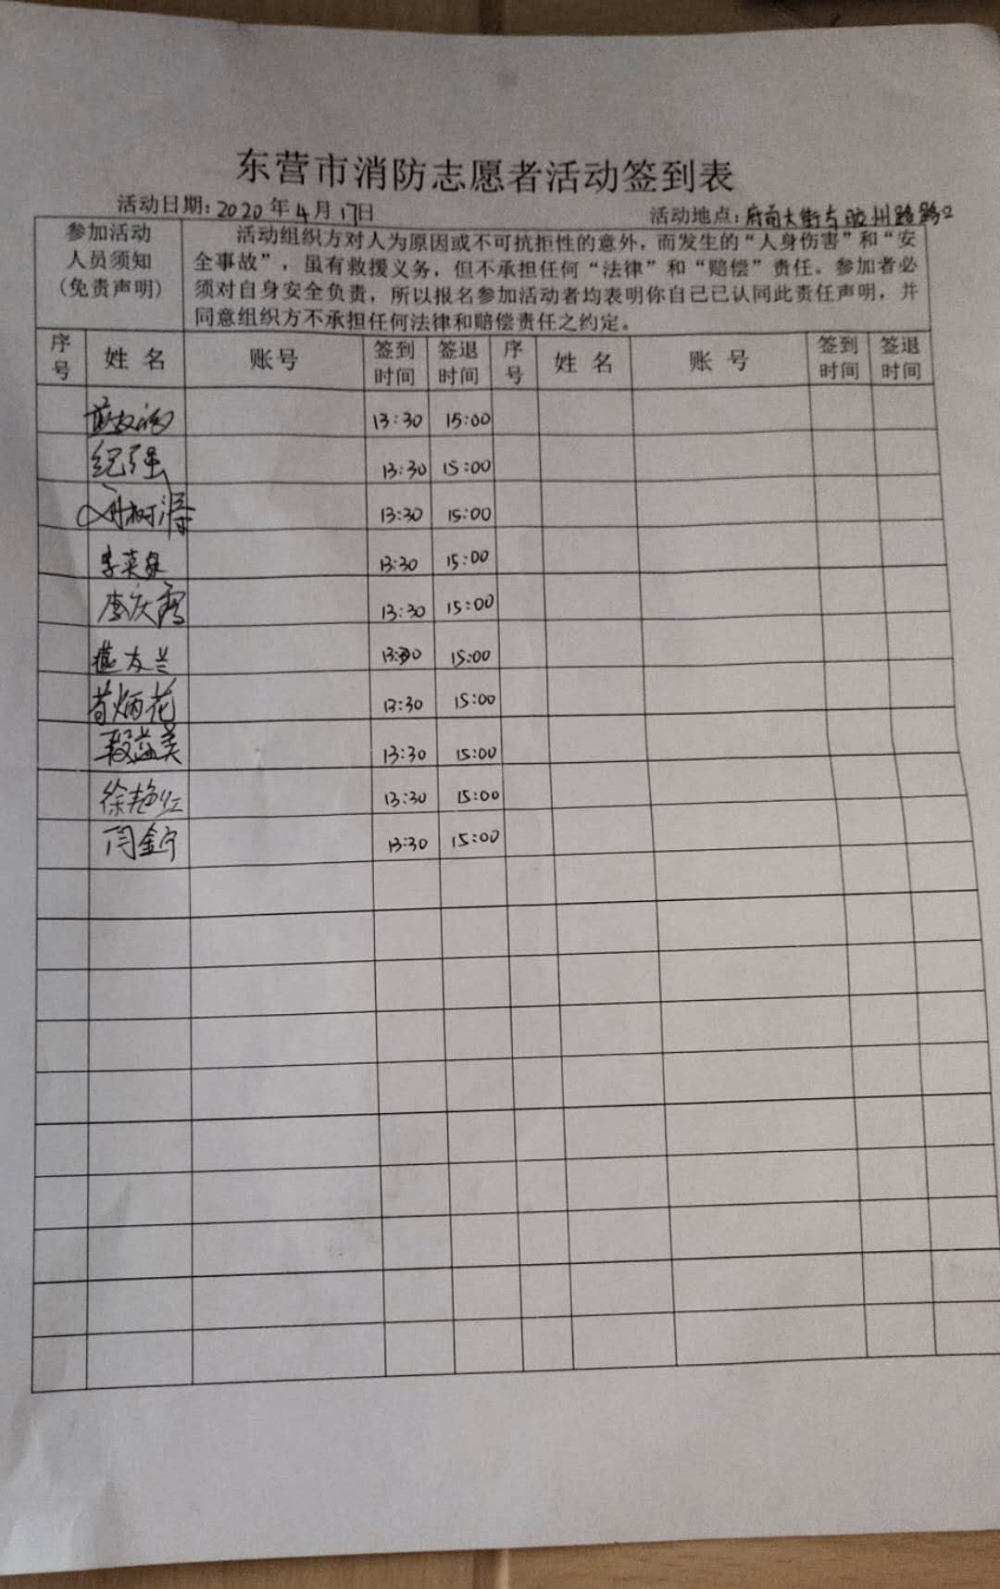 东营市消防志愿者活动签到表
活动日期:2020年4月17日 活动地点:府前大街与胶州路路口
参加活动
人员须知
(免责声明)
活动组织方对人为原因或不可抗拒性的意外,而发生的“人身伤害”和“安
全事故”,虽有救援义务,但不承担任何“法律”和“赔偿”责任。参加者必
须对自身安全负责,所以报名参加活动者均表明你自己已认同此责任声明,并
同意组织方不承担任何法律和赔偿责任之约定。
序号 姓名 账号 签到时间 签退时间 序号 姓名 账号 签到时间 签退时间
13:30 15:00
纪强 13:30 15:00
13:30 15:00
李英泉 13:30 15:00
李庆霞 13:30 15:00
燕友兰 13:30 15:00
苟炳花 13:30 15:00
段益美 13:30 15:00
徐艳红 13:30 15:00
闫金宁 13:30 15:00